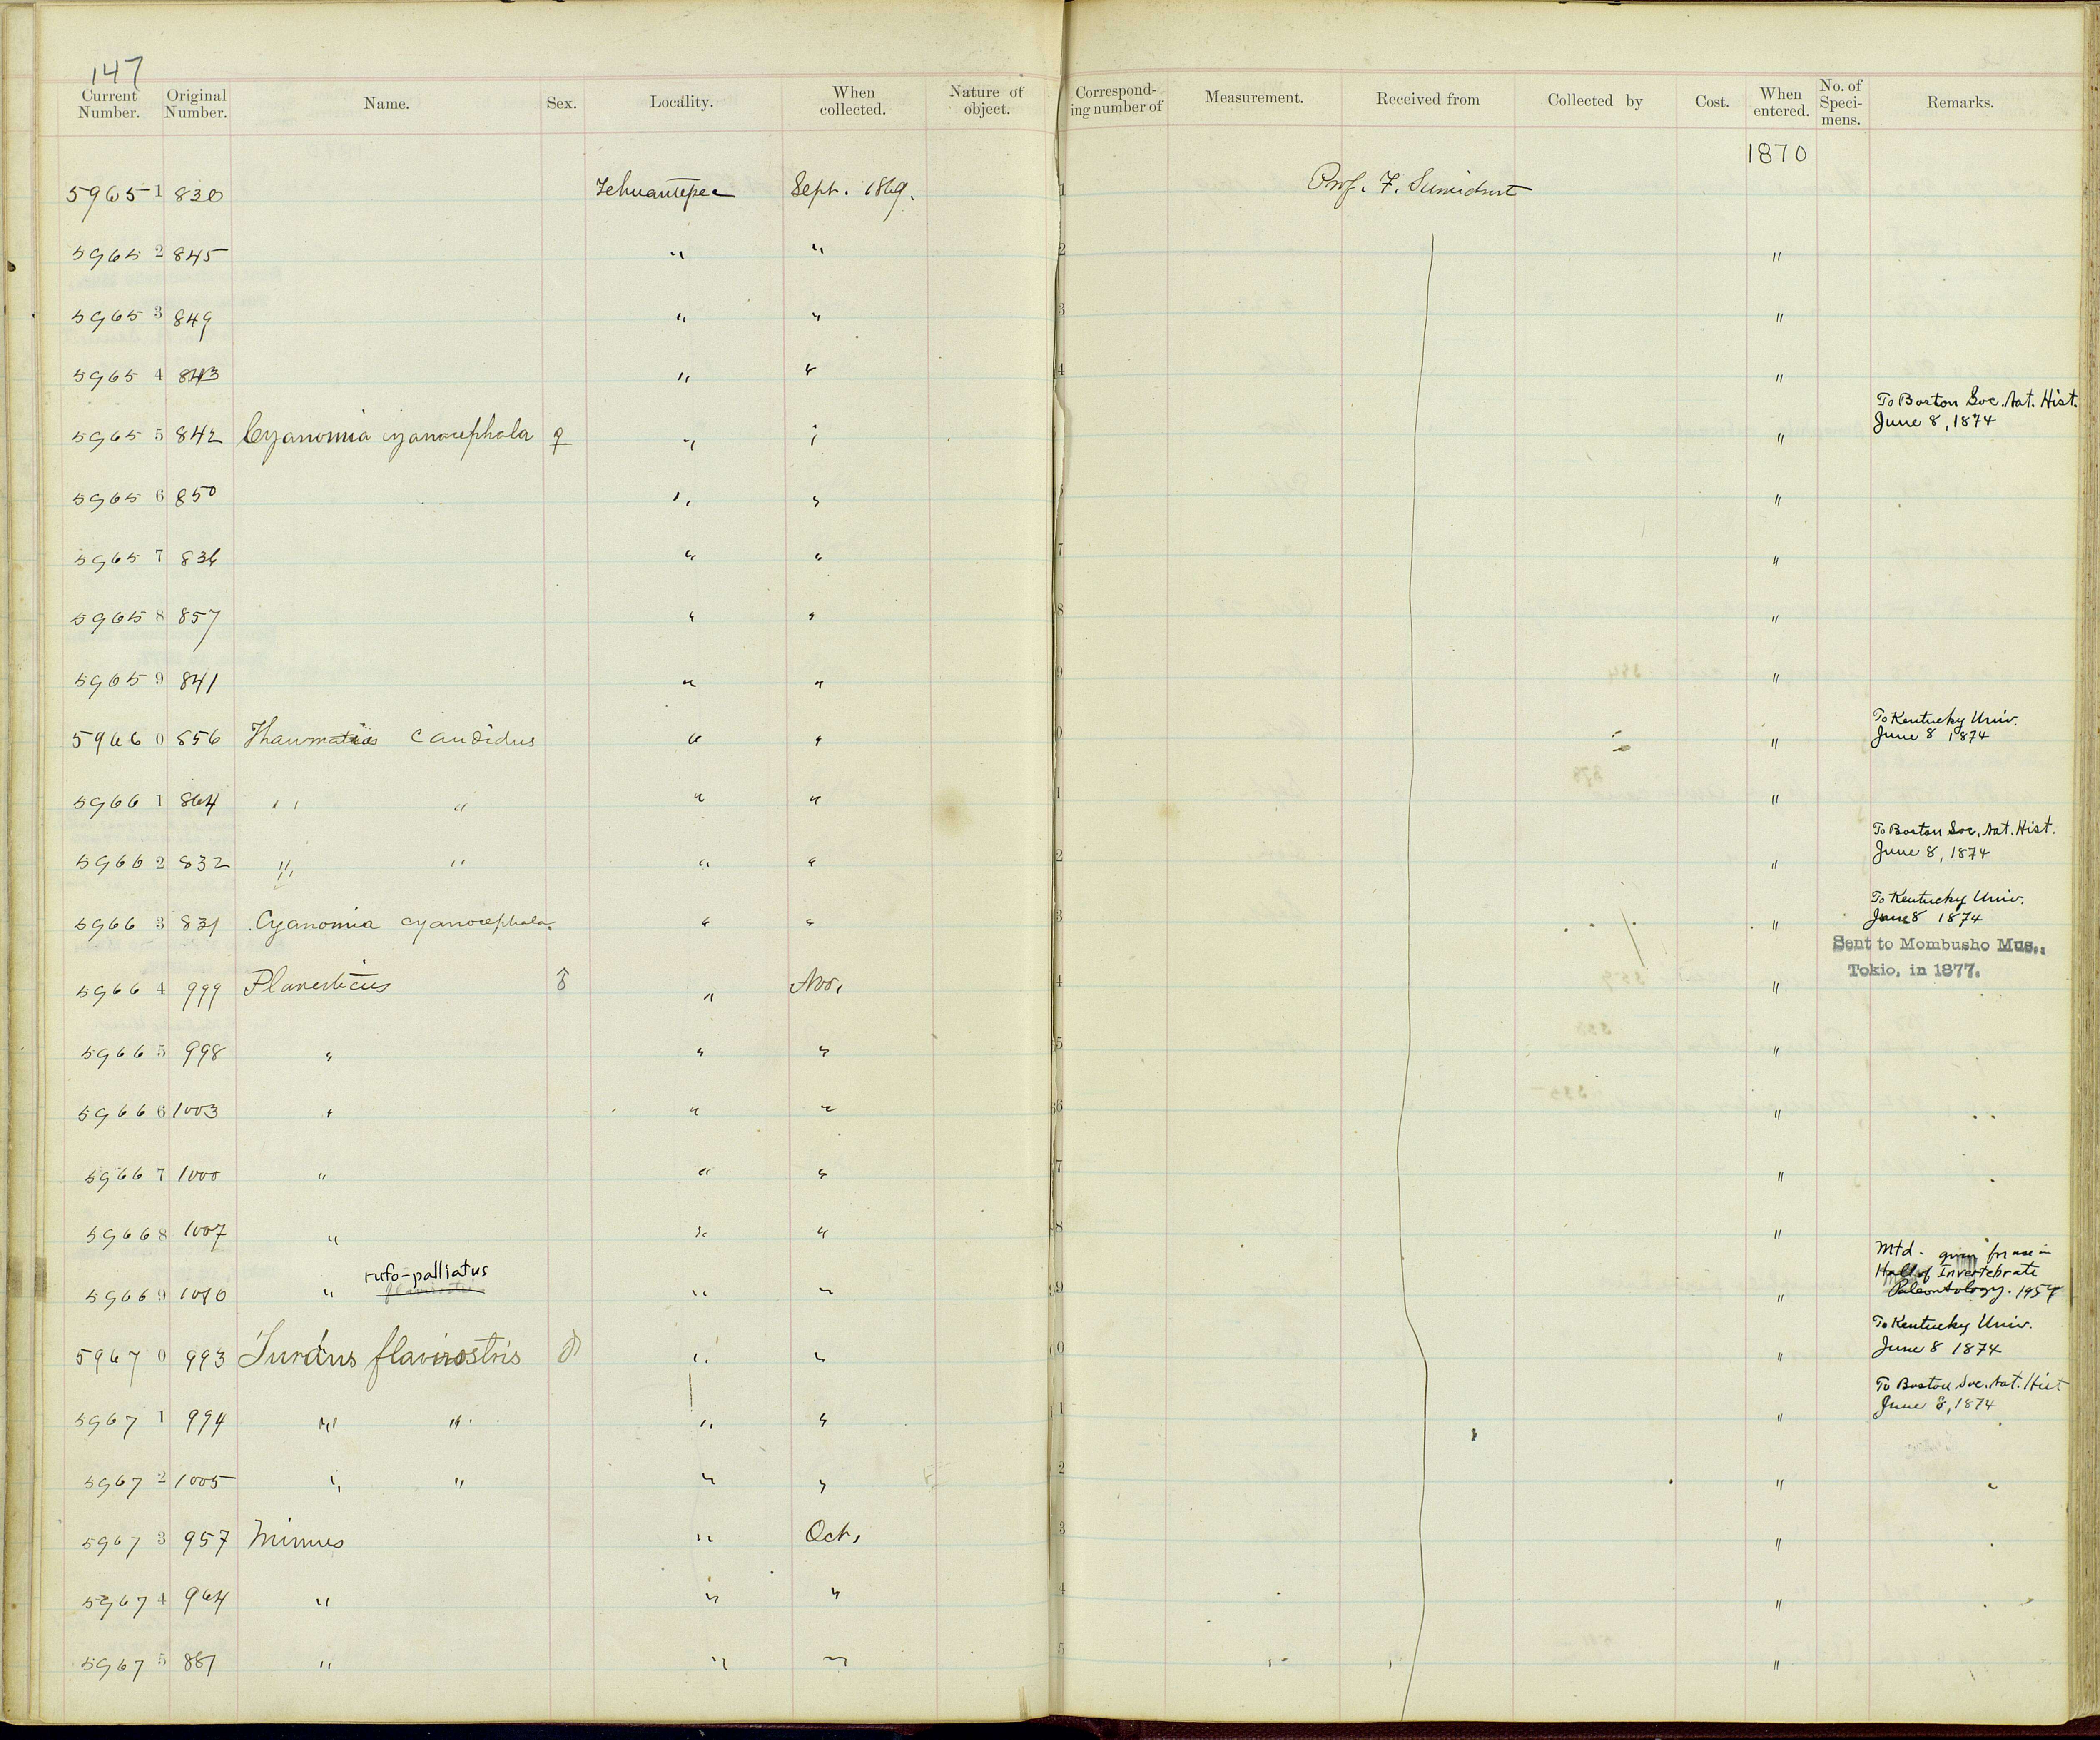 147
Current Number. Original Number. Name. Sex. Locality. When collected. Nature of object. Corresponding number of Measurement. Received from Collected by Cost. When entered. No. of Specimens. Remarks.
1870
59651 830 Tehuantepec Sept. 1869. 1 Prof. F. Sumichrast
59652 845 " " 2 "
59653 849 " " 3 "
59654 843 " " 4 "
To Boston Soc. Nat. Hist.
59655 842 Cyanomia cyanocephala ♀ " " " June 8, 1874
59656 850 " " "
59657 836 " " 7 "
59658 857 " " 8 "
59659 841 " " 9 "
To Kentucky Univ.
59660 856 Thaumatias candidus " " 0 " June 8 1874
59661 864 " " " " 1 "
To Boston Soc. Nat. Hist.
59662 832 " " " " 2 " June 8, 1874
To Kentucky Univ.
59663 831 Cyanomia cyanocephala. " " 3 " June 8 1874
Sent to Mombusho Mus.,
Tokio, in 1877.
59664 999 Planesticus ♂ " Nov. 4 "
59665 998 " " " 5 "
59666 1003 " " " 6 "
59667 1000 " " " 7 "
59668 1007 " " " 8 "
Mtd. given for use in
rufo-palliatus Hall of Invertebrate
59669 1010 " " " 9 " Paleontology. 1957
To Kentucky Univ.
59670 993 Turdus flavirostris ♂ " " 0 " June 8 1874
To Boston Soc. Nat. Hist
59671 994 " " " " 1 " June 8, 1874
59672 1005 " " " " 2 "
59673 957 Mimus " Oct. 3 "
59674 964 " " " 4 "
59675 881 " " " 5 "